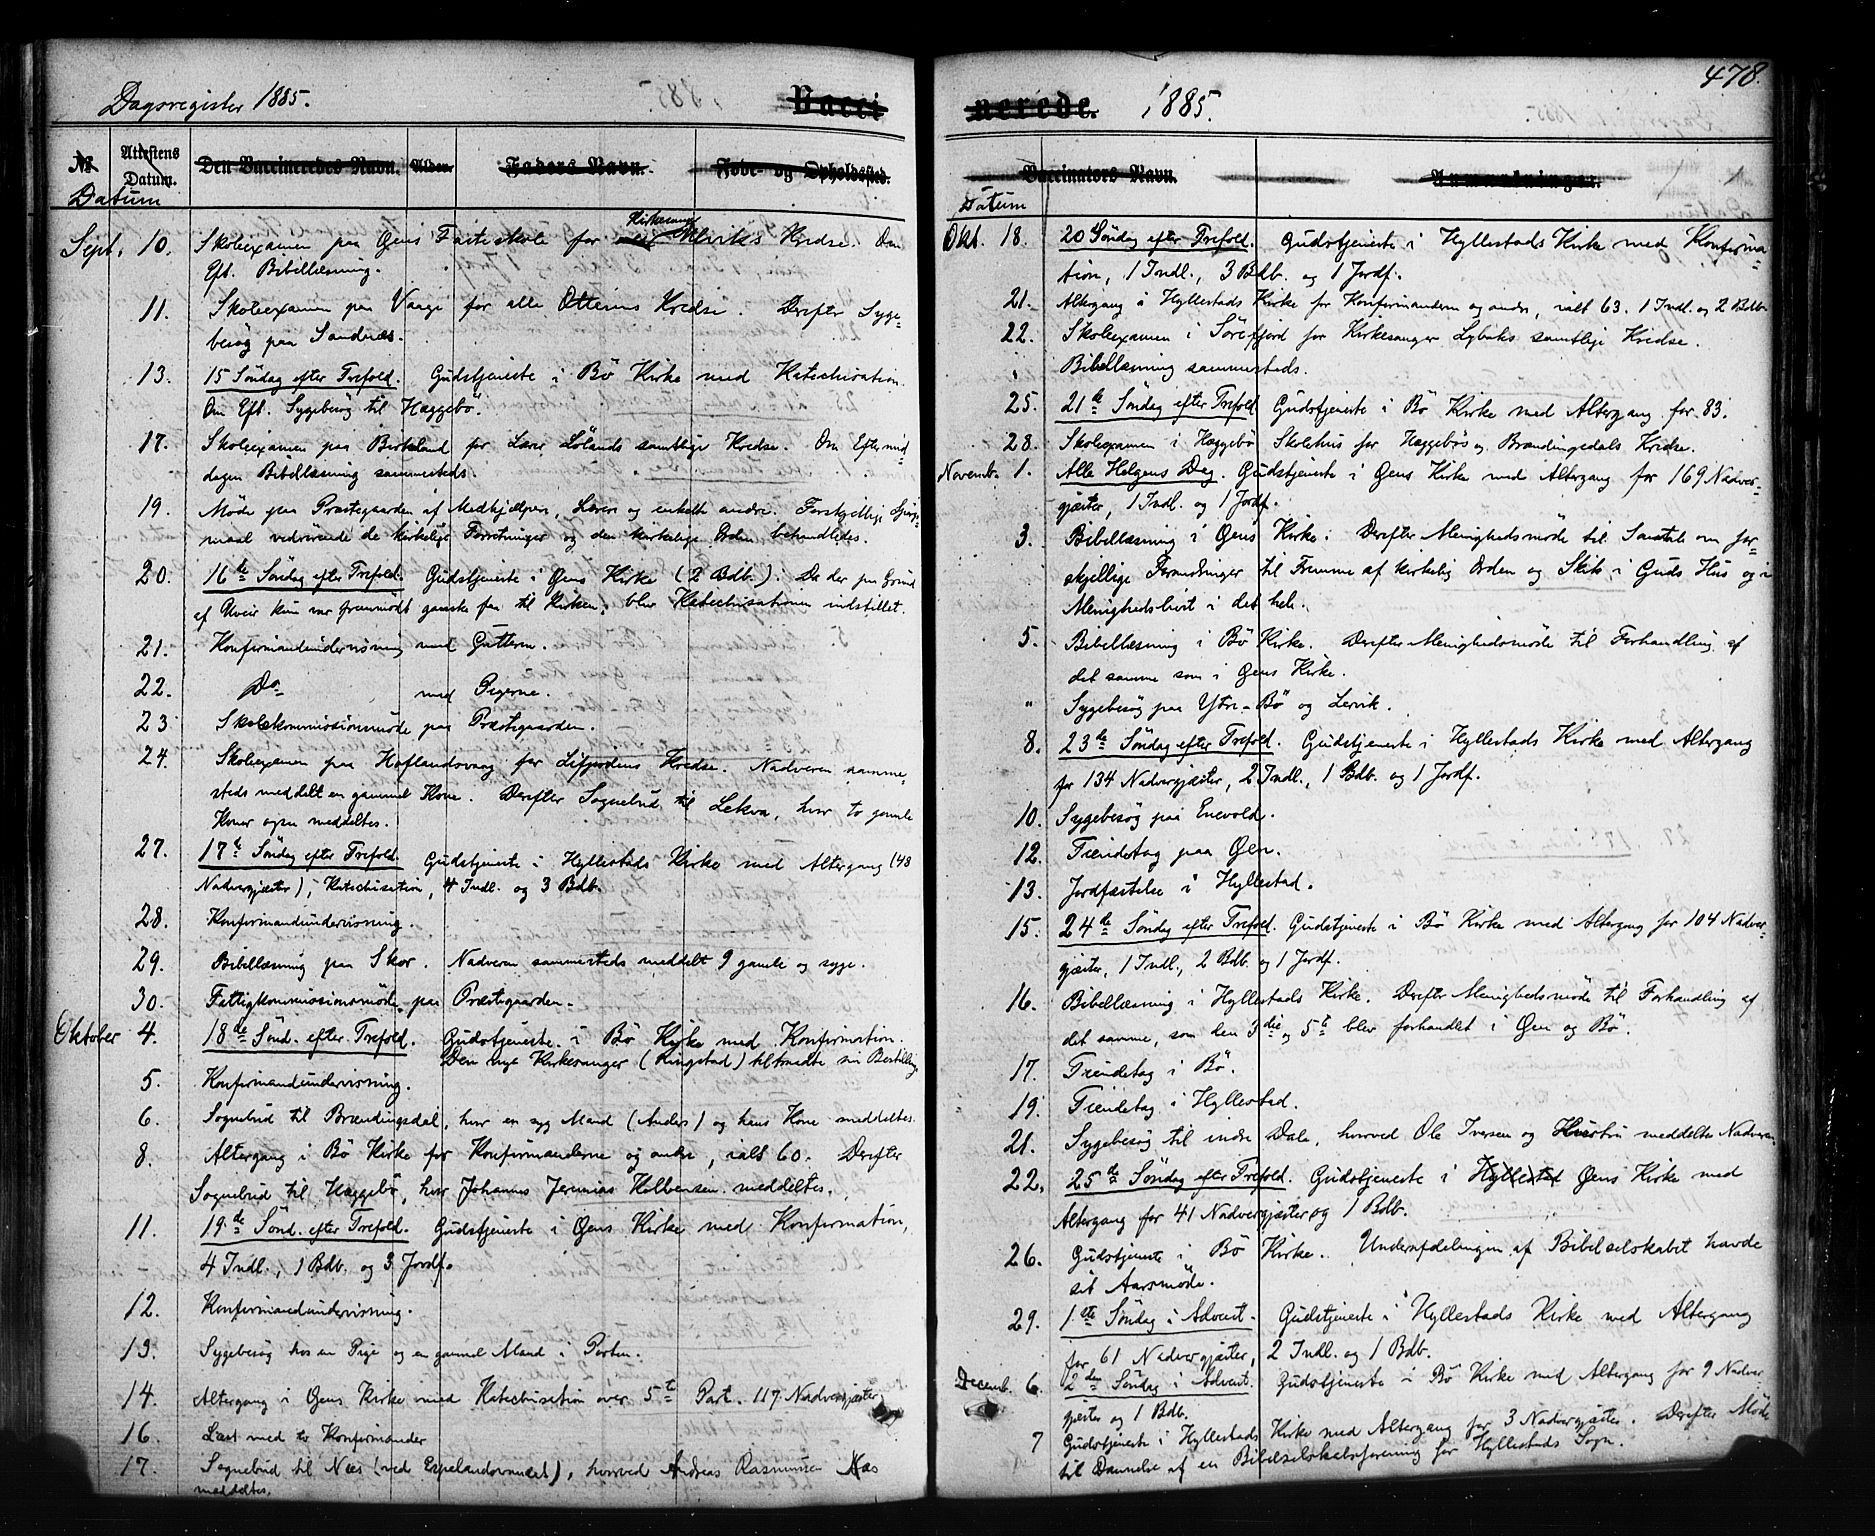 Dagsregister 1885.
Vacci
№
Attestens Datum.
Den Vaccineredes Navn.
Alder.
Faders Navn.
Føde- og Opholdssted.
Datum
Sept. 10. Skoleexamen paa Øens Fasteskole for Kirkesanger Alviks Kredse. Om
Eft. Bibellæsning.
11. Skoleexamen paa Vaage for alle Otterins Kredse. Derefter Syge-
besøg paa Sandnæs.
13. 15 Søndag efter Trefold. Gudstjeneste i Bø Kirke med Katechisation.
Om Eft. Sygebesøg til Hæggebø.
17. Skoleexamen paa Birkeland for Lærer Lølands samtlige Kredse. Om Eftermid-
dagen Bibellæsning sammesteds.
19. Møde paa Præstegaarden af Medhjælpere, Lærere og enkelte andre. Forskjellige Spørgs-
maal vedrørende de kirkelige Forretninger og den kirkelige Orden behandledes.
20. 16de Søndag efter Trefold. Gudstjeneste i Øens Kirke (2 Bdb.). Da der paa Grund
af Uveir kun var fremmødt ganske faa til Kirken, blev Katechisationen indstillet.
21. Konfirmandundervisning med Gutterne.
22. Do med Pigerne.
23 Skolekommissionsmøde paa Præstegaarden.
24. Skoleexamen paa Hoflandsvaag for Lifjordens Kredse. Nadveren samme-
steds meddelt en gammel Kone. Derefter Sognebud til Lekva, hvor to gamle
Koner ogsaa meddeltes.
27. 17de Søndag efter Trefold. Gudstjeneste i Hyllestads Kirke med Altergang (48
Nadvergjæster), Katechisation, 4 Indl. og 3 Bdb.
28. Konfirmandundervisning.
29. Bibellæsning paa Skor. Nadveren sammesteds meddelt 9 gamle og syge.
30. Fattigkommissionsmøde paa Præstegaarden.
Oktober 4. 18de Sønd. efter Trefold. Gudstjeneste i Bø Kirke med Konfirmation.
Den nye Kirkesanger (Ringstad) tiltraadte sin Bestilling
5. Konfirmandundervisning.
6. Sognebud til Brændingsdal, hvor en syg Mand (Anders) og hans Kone meddeltes.
8. Altergang i Bø Kirke for Konfirmanderne og andre, ialt 60. Derefter
Sognebud til Hæggebø, hvor Johannes Jeremias Kolbensen meddeltes.
11. 19de Sønd. efter Trefold. Gudstjeneste i Øens Kirke med Konfirmation,
4 Indl., 1 Bdb. og 3 Jordf.
12. Konfirmandundervisning.
13. Sygebesøg hos en Pige og en gammel Mand i Porten.
14. Altergang i Øens Kirke med Katechisation over 5te Part. 117 Nadvergjæster.
16. Læst med to Konfirmander
17. Sognebud til Næs (ved Espelandsvandet), hvorved Andreas Rasmussen Næs
meddeltes.
478.
nerede.
1885.
Vaccinators Navn.
Anmærkninger.
Datum
Okt. 18. 20 Søndag efter Trefold. Gudstjeneste i Hyllestads Kirke med Konfirma-
tion, 1 Indl., 3 Bdb. og 1 Jordf.
21. Altergang i Hyllestads Kirke for Konfirmanderne og andre, ialt 63. 1 Indl. og 2 Bdb.
22. Skoleexamen i Sørefjord for Kirkesanger Lybæks samtlige Kredse.
Bibellæsning sammesteds.
25. 21de Søndag efter Trefold. Gudstjeneste i Bø Kirke med Altergang for 83.
28. Skoleexamen i Hæggebø Skolehus for Hæggebøs og Brændingsdals Kredse.
Novemb. 1. Alle Helgens Dag. Gudstjeneste i Øens Kirke med Altergang for 169 Nadver-
gjæster, 1 Indl. og 1 Jordf.
3. Bibellæsning i Øens Kirke. Derefter Menighedsmøde til Samtale om for-
skjellige Forandringer til Fremme af kirkelig Orden og Skik i Guds Hus og i
Menighedslivet i det hele.
5. Bibellæsning i Bø Kirke. Derefter Menighedsmøde til Forhandling af
det samme som i Øens Kirke.
" Sygebesøg paa Ytre-Bø og Lervik.
8. 23de Søndag efter Trefold. Gudstjeneste i Hyllestads Kirke med Altergang
for 134 Nadvergjæster, 2 Indl., 1 Bdb. og 1 Jordf.
10. Sygebesøg paa Enevold.
12. Tiendetag paa Øen.
13. Jordfæstelse i Hyllestad.
15. 24de Søndag efter Trefold. Gudstjeneste i Bø Kirke med Altergang for 104 Nadver-
gjæster, 1 Indl., 2 Bdb. og 1 Jordf.
16. Bibellæsning i Hyllestads Kirke. Derefter Menighedsmøde til Forhandling af
det samme, som den 3die og 5te blev forhandlet i Øen og Bø.
17. Tiendetag i Bø.
19. Tiendetag i Hyllestad.
21. Sygebesøg til indre Dale, hvorved Ole Iversen og Hustru meddeltes Nadveren
22. 25de Søndag efter Trefold. Gudstjeneste i Hyllestad Øens Kirke med
Altergang for 41 Nadvergjæster og 1 Bdb.
26. Gudstjeneste i Bø Kirke. Underafdelingen af Bibelselskabet havde
sit Aarsmøde.
29. 1ste Søndag i Advent. Gudstjeneste i Hyllestads Kirke med Altergang
for 61 Nadvergjæster, 2 Indl. og 1 Bdb.
Decemb. 6. 2den Søndag i Advent. Gudstjeneste i Bø Kirke med Altergang for 9 Nadver
gjæster og 1 Bdb.
7 Gudstjeneste i Hyllestads Kirke med Altergang for 3 Nadvergjæster. Derefter Møde
til Dannelse af en Bibelselskabsforening for Hyllestads Sogn.